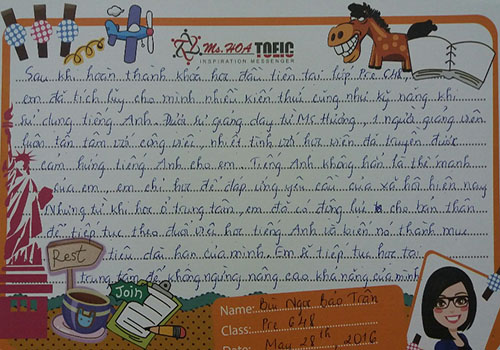 Ms. HOA TOEIC
INSPIRATION MESSENGER
Sau khi hoàn thành khoá học đầu tiên tại lớp Pre C48,
em đã tích lũy cho mình nhiều kiến thức cũng như kỹ năng khi
sử dụng tiếng Anh. Dưới sự giảng dạy từ Ms Hương, 1 người giảng viên
luôn tận tâm với công việc, nhiệt tình với học viên đã truyền được
cảm hứng tiếng Anh cho em. Tiếng Anh không hẳn là thế mạnh
của em, em chỉ học để đáp ứng yêu cầu của xã hội hiện nay
Nhưng từ khi học ở trung tâm, em đã có động lực cho bản thân
để tiếp tục theo đuổi việc học tiếng Anh và biến nó thành mục
tiêu dài hạn của mình. Em sẽ tiếp tục học tại
trung tâm để không ngừng nâng cao khả năng của mình
Rest
Join
Name: Bùi Ngọc Bảo Trân
Class: Pre C48
Date: May 28th, 2016